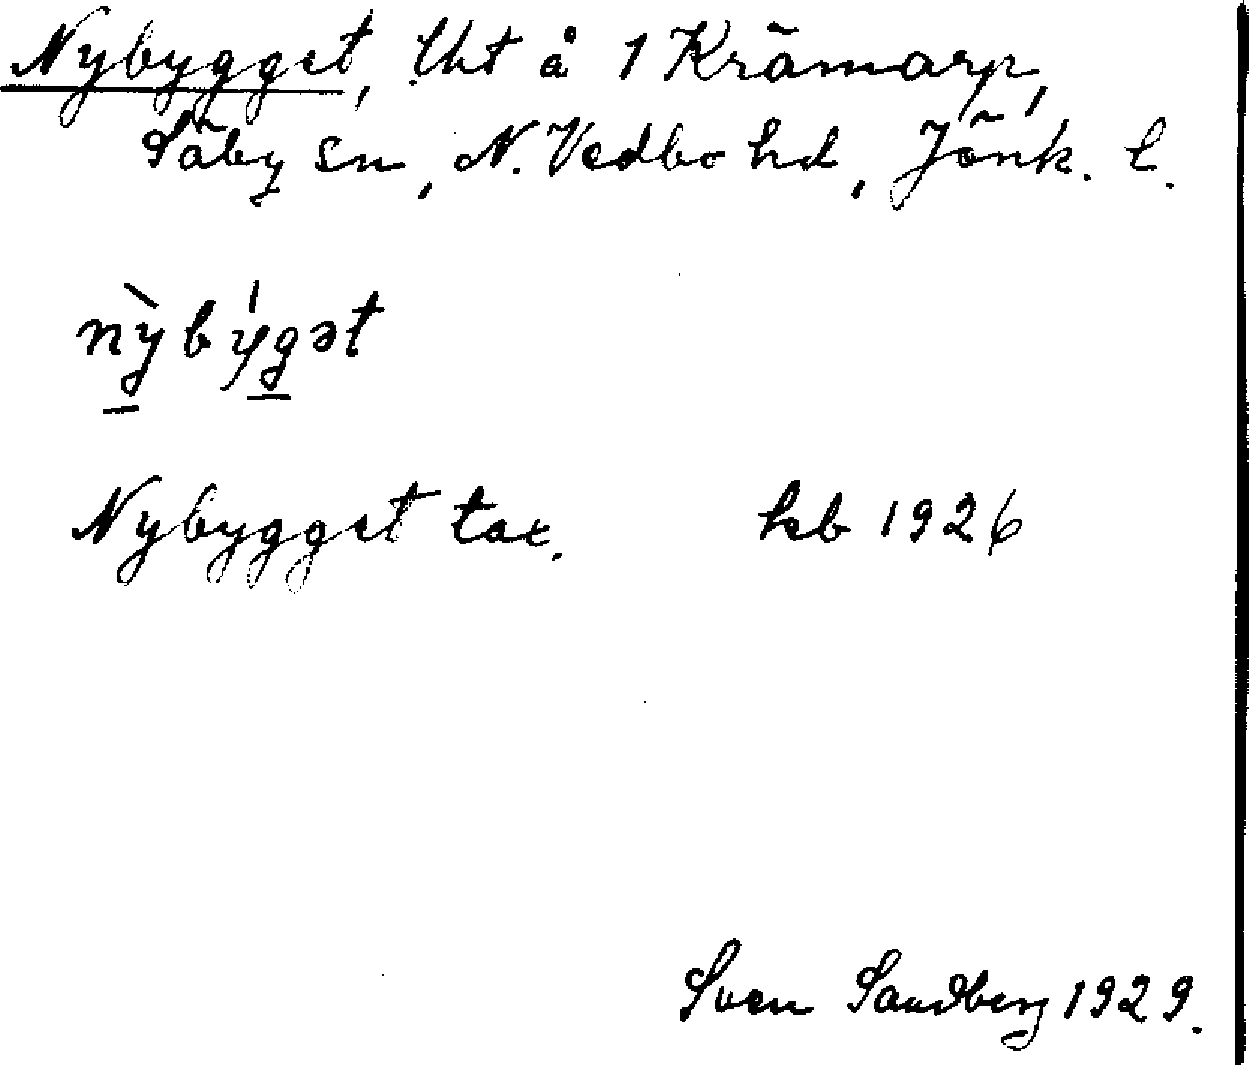 Nybygget, Uht å 1 Krämarp,
Säby sn, N. Vedbo hd, Jönk. l.
nỳbýgət
Nybygget tax. hsb 1926
Sven Sandberg 1929.